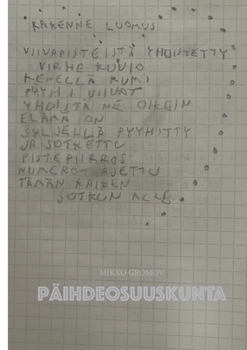 RAKENNE LUOMUS
VIIVAPISTEISTÄ YHDISTETTY
VIRHE KUVIO
KENELLÄ KUMI
PYYHI VIIVAT
YHDISTÄ NE OIKEIN
ELÄMÄ ON
SYLJELLÄ PYYHITTY
JA SOTKETTU
PISTEPIIRROS
NUMEROT AJETTU
TÄMÄN KAIKEN
SOTKUN ALLE
MIKKO GROMOV
PÄIHDEOSUUSKUNTA